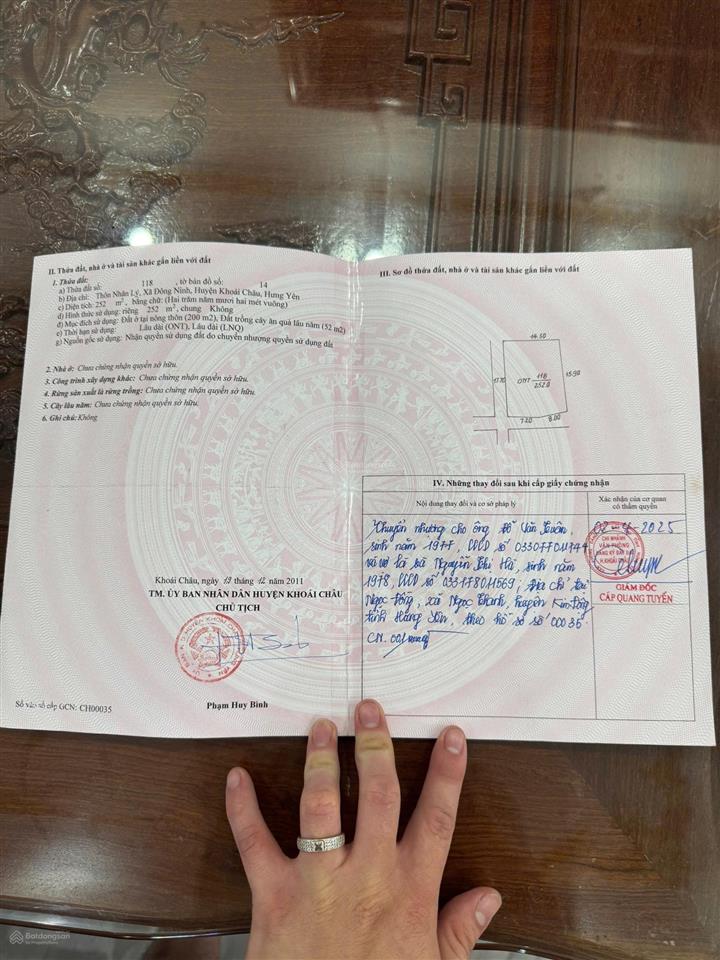 II. Thửa đất, nhà ở và tài sản khác gắn liền với đất
1. Thửa đất:
a) Thửa đất số: 118 , tờ bản đồ số: 14
b) Địa chỉ: Thôn Nhân Lý, Xã Đông Ninh, Huyện Khoái Châu, Hưng Yên
c) Diện tích: 252 m², bằng chữ: (Hai trăm năm mươi hai mét vuông)
d) Hình thức sử dụng: riêng 252 m², chung Không
đ) Mục đích sử dụng: Đất ở tại nông thôn (200 m2), Đất trồng cây ăn quả lâu năm (52 m2)
e) Thời hạn sử dụng: Lâu dài (ONT), Lâu dài (LNQ)
g) Nguồn gốc sử dụng: Nhận quyền sử dụng đất do chuyển nhượng quyền sử dụng đất
2. Nhà ở: Chưa chứng nhận quyền sở hữu.
3. Công trình xây dựng khác: Chưa chứng nhận quyền sở hữu.
4. Rừng sản xuất là rừng trồng: Chưa chứng nhận quyền sở hữu.
5. Cây lâu năm: Chưa chứng nhận quyền sở hữu.
6. Ghi chú: Không
Khoái Châu, ngày 13 tháng 12 năm 2011
TM. ỦY BAN NHÂN DÂN HUYỆN KHOÁI CHÂU
CHỦ TỊCH
Phạm Huy Bình
Số vào sổ cấp GCN: CH00035
III. Sơ đồ thửa đất, nhà ở và tài sản khác gắn liền với đất
14.50
17.70
ONT 118
252.0
15.90
7.20 8.00
IV. Những thay đổi sau khi cấp giấy chứng nhận
Nội dung thay đổi và cơ sở pháp lý
Xác nhận của cơ quan
có thẩm quyền
Chuyển nhượng cho ông Đỗ Văn
sinh năm 1977, CCCD số
và vợ là bà Nguyễn Thị Hà, sinh năm
1978, CCCD số 033178011569; Địa chỉ tại
Ngọc Đồng, xã Ngọc Thanh, huyện Kim Động
tỉnh Hưng Yên, theo hồ sơ số 00035
CN. 001
02-4-2025
CHI NHÁNH
VĂN PHÒNG
ĐĂNG KÝ ĐẤT ĐAI
H. KHOÁI CHÂU
GIÁM ĐỐC
CẤP QUANG TUYẾN
Batdongsan